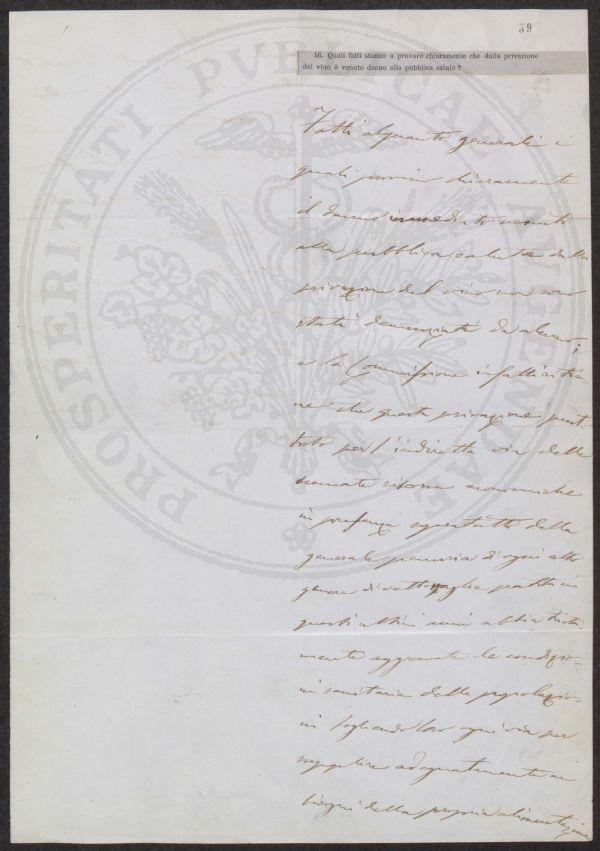 39
46. Quali fatti stanno a provare chiaramente che dalla privazione
del vino è venuto danno alla pubblica salute?
Fatti alquanto generali i
quali provin chiaramente
il danno immediato venuto
alla pubblica salute dalla
privazione del vino non sono
stati denunziati da alcuno;
e la Commissione infatti ritie
ne che questa privazione piut
tosto per l'indiretta via delle
scemate risorse economiche
in presenza soprattutto della
generale penuria d'ogni altro
genere di vettovaglia patita in
questi ultimi anni abbia trista
mente aggravate le condizio-
ni sanitarie delle popolazio-
ni togliendo loro ogni via per
supplire adeguatamente ai
bisogni della propria alimentazione
PROSPERITATI PVBLICAE AVGENDAE